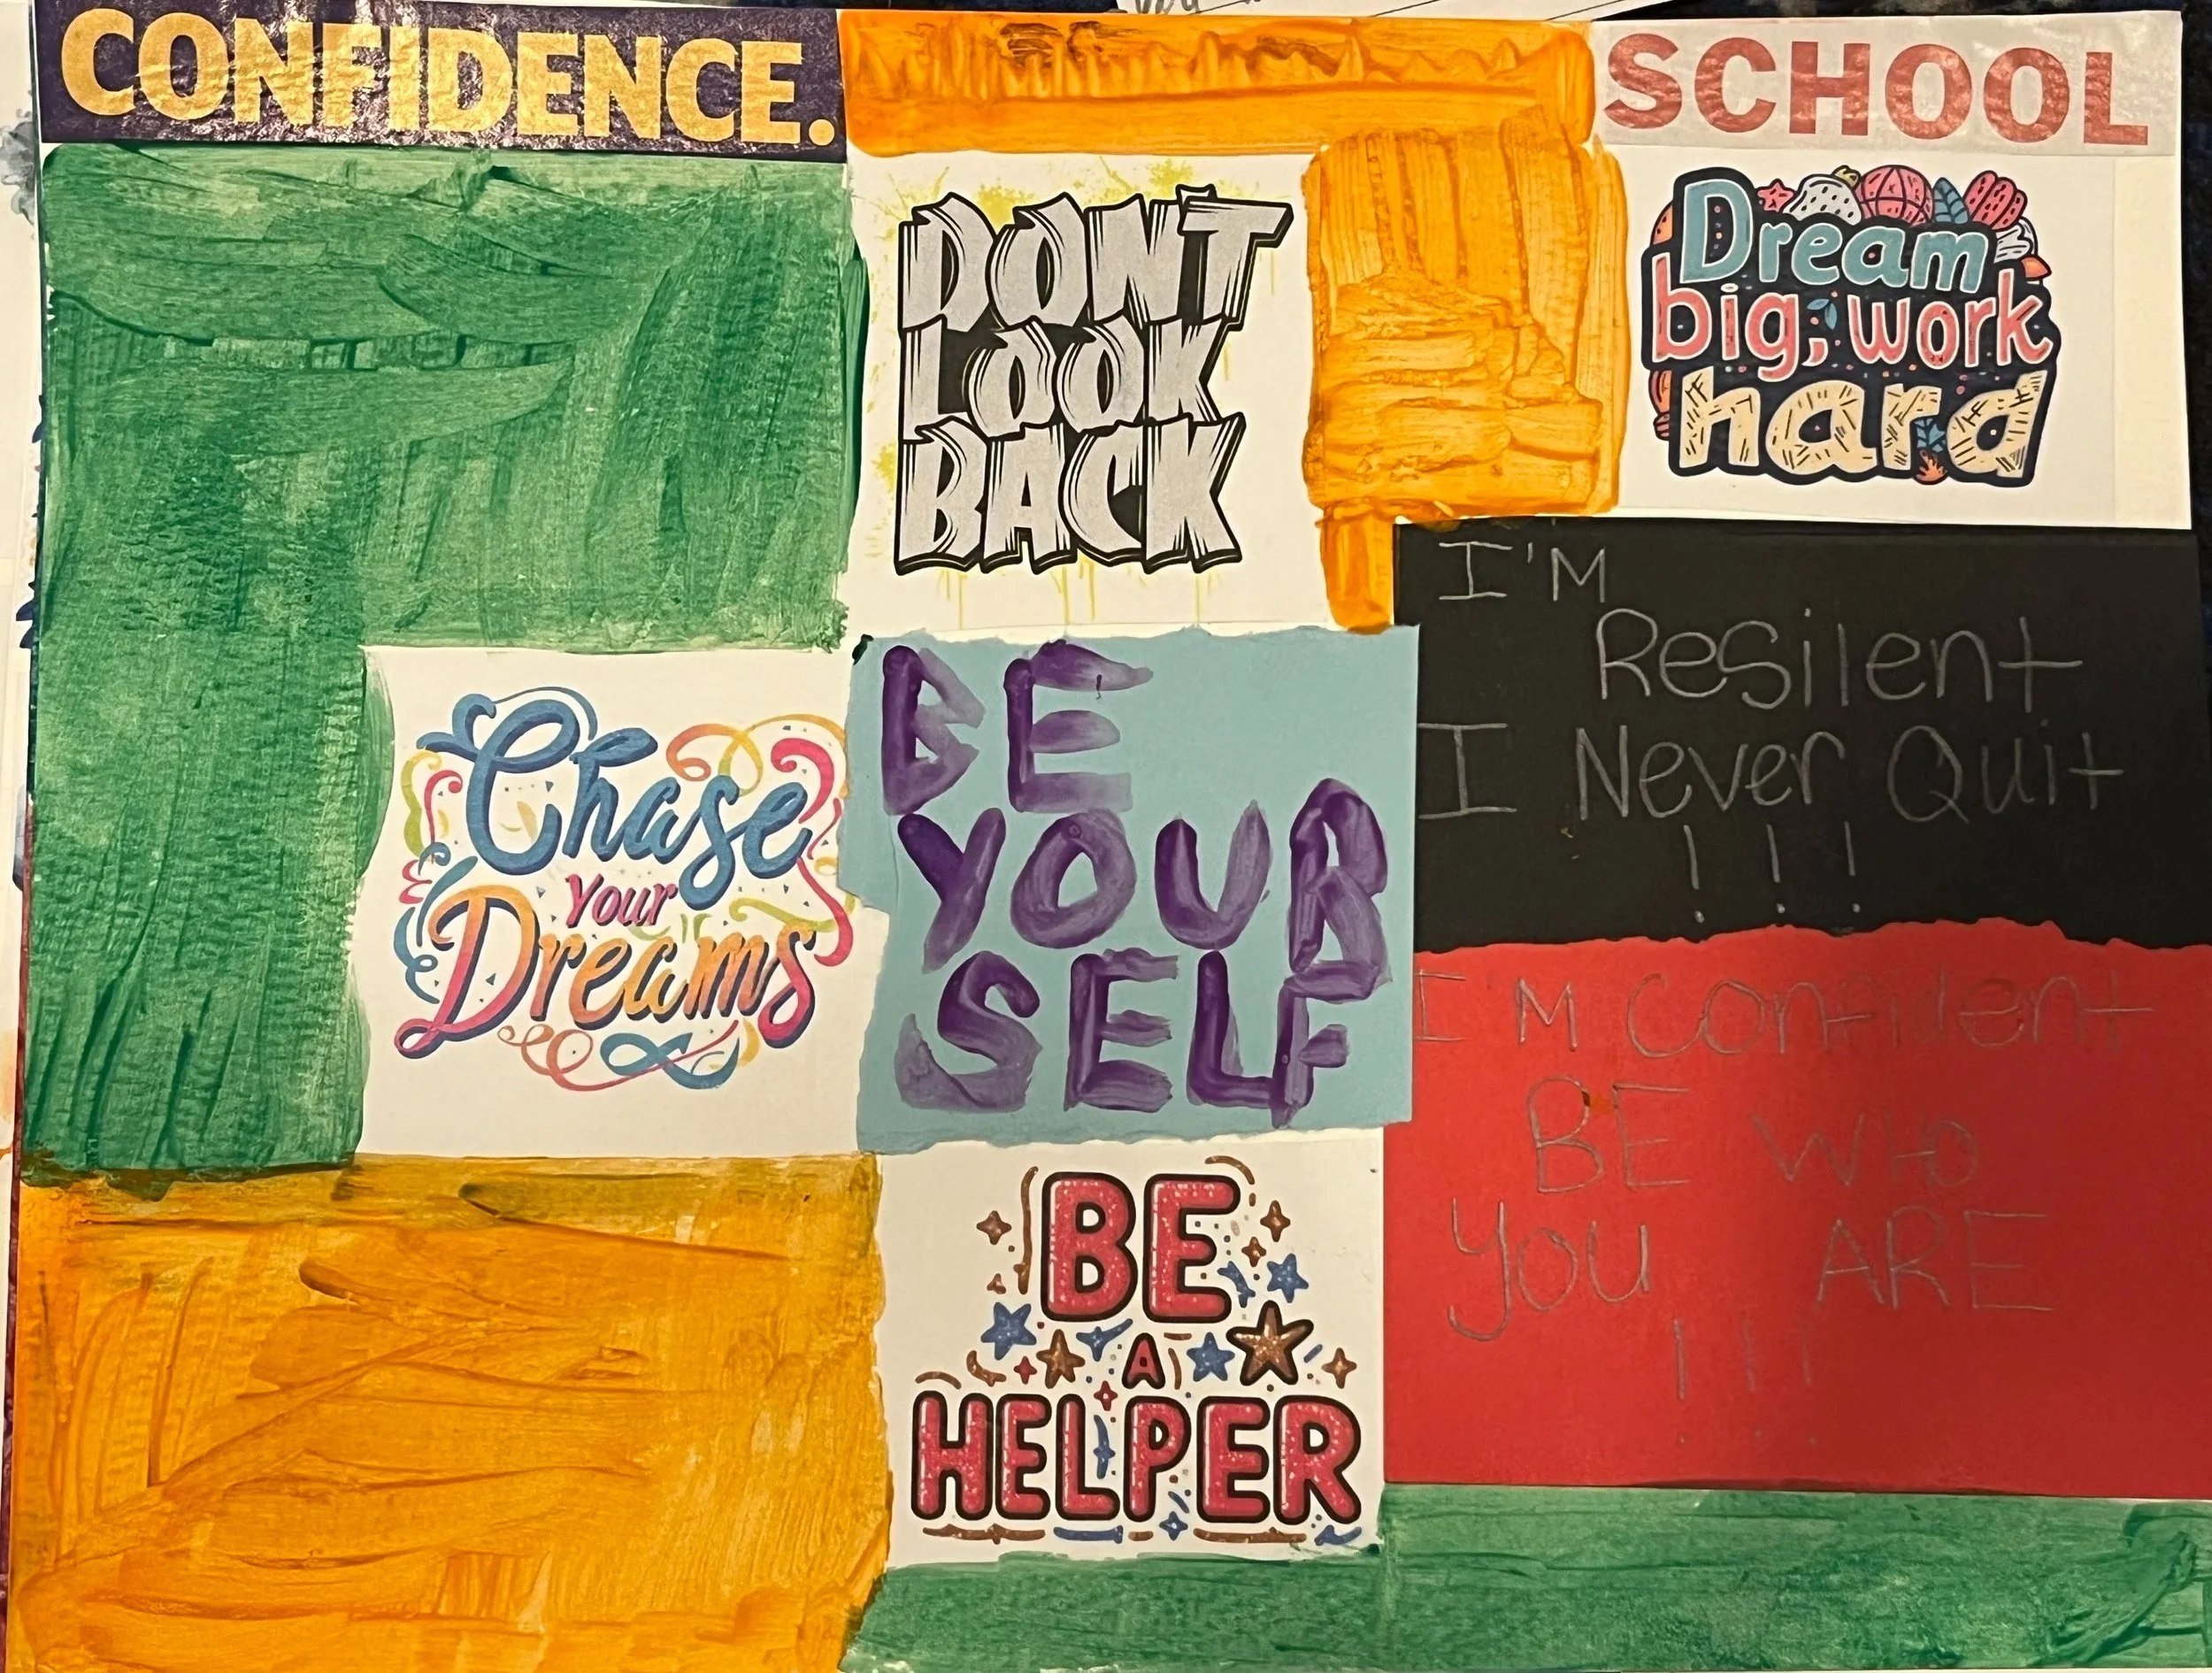 CONFIDENCE.
SCHOOL
DONT
LOOK
BACK
Dream
big, work
hard
I'M
Resilent
I Never Quit
!!!
Chase
Your
Dreams
BE
YOUR
SELF
I'M Confident
BE WHO
YOU ARE
!!!
BE
A
HELPER